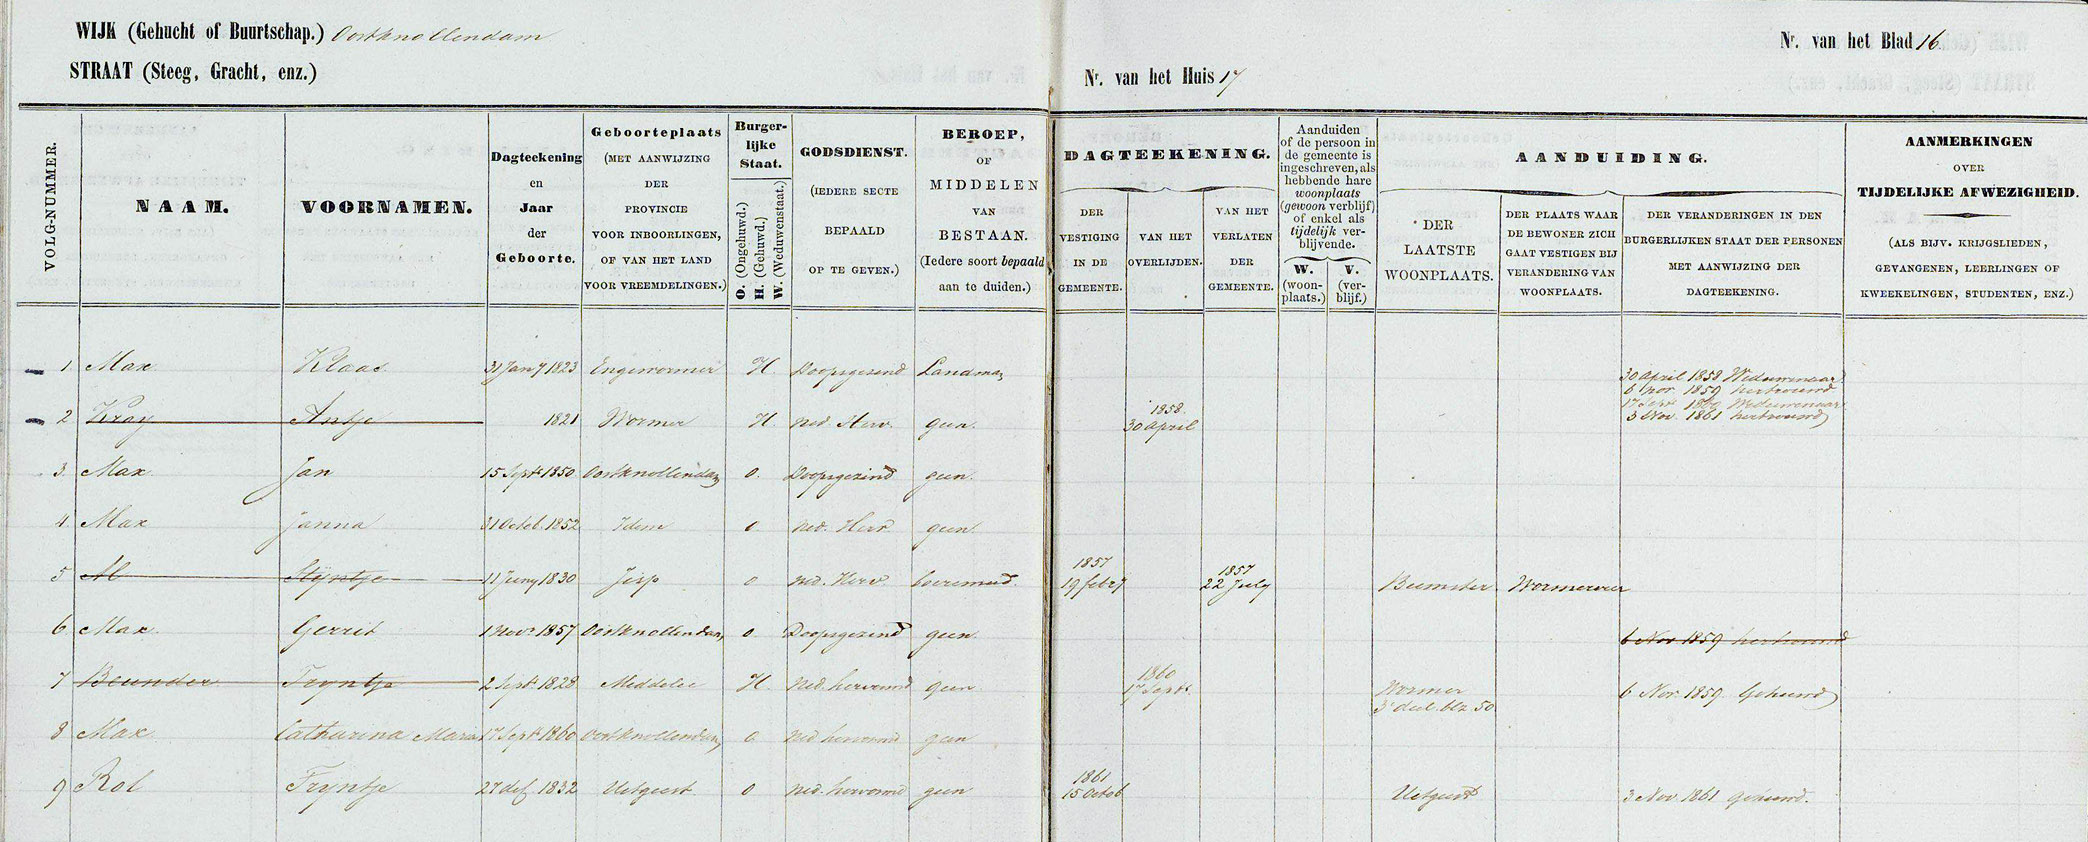 WIJK (Gehucht of Buurtschap.) Oostknollendam
STRAAT (Steeg, Gracht, enz.)
Nr. van het Huis 17
Nr. van het Blad 16
VOLG-NUMMER.
NAAM.
VOORNAMEN.
Dagteekening
en
Jaar
der
Geboorte.
Geboorteplaats
(MET AANWIJZING
DER
PROVINCIE
VOOR INBOORLINGEN,
OF VAN HET LAND
VOOR VREEMDELINGEN.)
Burger-
lijke
Staat.
O. (Ongehuwd.)
H. (Gehuwd.)
W. (Weduwenstaat.)
GODSDIENST.
(IEDERE SECTE
BEPAALD
OP TE GEVEN.)
BEROEP,
OF
MIDDELEN
VAN
BESTAAN.
(Iedere soort bepaald
aan te duiden.)
DAGTEEKENING.
DER
VESTIGING
IN DE
GEMEENTE.
VAN HET
OVERLIJDEN.
VAN HET
VERLATEN
DER
GEMEENTE.
Aanduiden
of de persoon in
de gemeente is
ingeschreven, als
hebbende hare
woonplaats
(gewoon verblijf)
of enkel als
tijdelijk ver-
blijvende.
W.
(woon-
plaats.)
V.
(ver-
blijf.)
AANDUIDING.
DER
LAATSTE
WOONPLAATS.
DER PLAATS WAAR
DE BEWONER ZICH
GAAT VESTIGEN BIJ
VERANDERING VAN
WOONPLAATS.
DER VERANDERINGEN IN DEN
BURGERLIJKEN STAAT DER PERSONEN
MET AANWIJZING DER
DAGTEEKENING.
AANMERKINGEN
OVER
TIJDELIJKE AFWEZIGHEID.
(ALS BIJV. KRIJGSLIEDEN,
GEVANGENEN, LEERLINGEN OF
KWEEKELINGEN, STUDENTEN, ENZ.)
1. Max Klaas 31 Jany 1823 Engewormer H. Doopsgezind Landman
30 April 1858 Weduwenaar
6 Nov. 1859 hertrouwd
17 Sept. 1860 Weduwenaar
3 Nov. 1861 hertrouwd
2 Kray Antje 1821 Wormer H. ned. Herv. geen 1858 30 April
3. Max Jan 15 Sept. 1850 Oostknollendam O. Doopsgezind geen
4. Max Janna 31 Octob. 1852 Idem O ned. Herv. geen
5 M Stijntje 11 Juny 1830 Jisp O ned. Herv. boeremeid 1857 19 febry 1857 22 July Beemster Wormerveer
6 Max Gerrit 1 Novr 1857 Oostknollendam O. Doopsgezind geen 6 Nov 1859 hertrouwd
7 Beunder Tryntje 2 Sept. 1828 Middelie H. Ned. hervormd geen 1860 17 Sept. Wormer 3e deel. blz. 50 6 Nov. 1859. Gehuwd
8 Max Catharina Maria 17 Sept. 1860 Oostknollendam O ned hervormd geen
9 Rol Tryntje 27 dec. 1832 Uitgeest O ned. hervormd geen 1861 15 Octob Uitgeest 3 Nov. 1861 gehuwd.